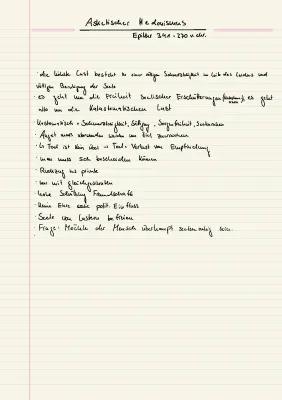 Asketischer Hedonismus
Epikur 341 - 270 v. chr.
· die höchste Lust besteht in einer völligen Schmerzlosigkeit im Leib des Leidens und
völligen Beruhigung der Seele
· es geht um die Freiheit seelischer Erschütterungen es geht
also um die Katastematischen Lust
Katastematisch = Schmerzlosigkeit, Sorgenfreiheit,
· Angst muss überwunden werden um Ziel zu erreichen
· Tod ist kein Übel = Tod = Verlust von Empfindung
· man muss sich bescheiden können
· Rückzug ins private
· nur mit gleichgesinnten
· hohe Schätzung Freundschaft
· keine Ehre oder polit. Einfluss
· Seele von Lastern befreien
· Frage: Möchte der Mensch überhaupt sein.